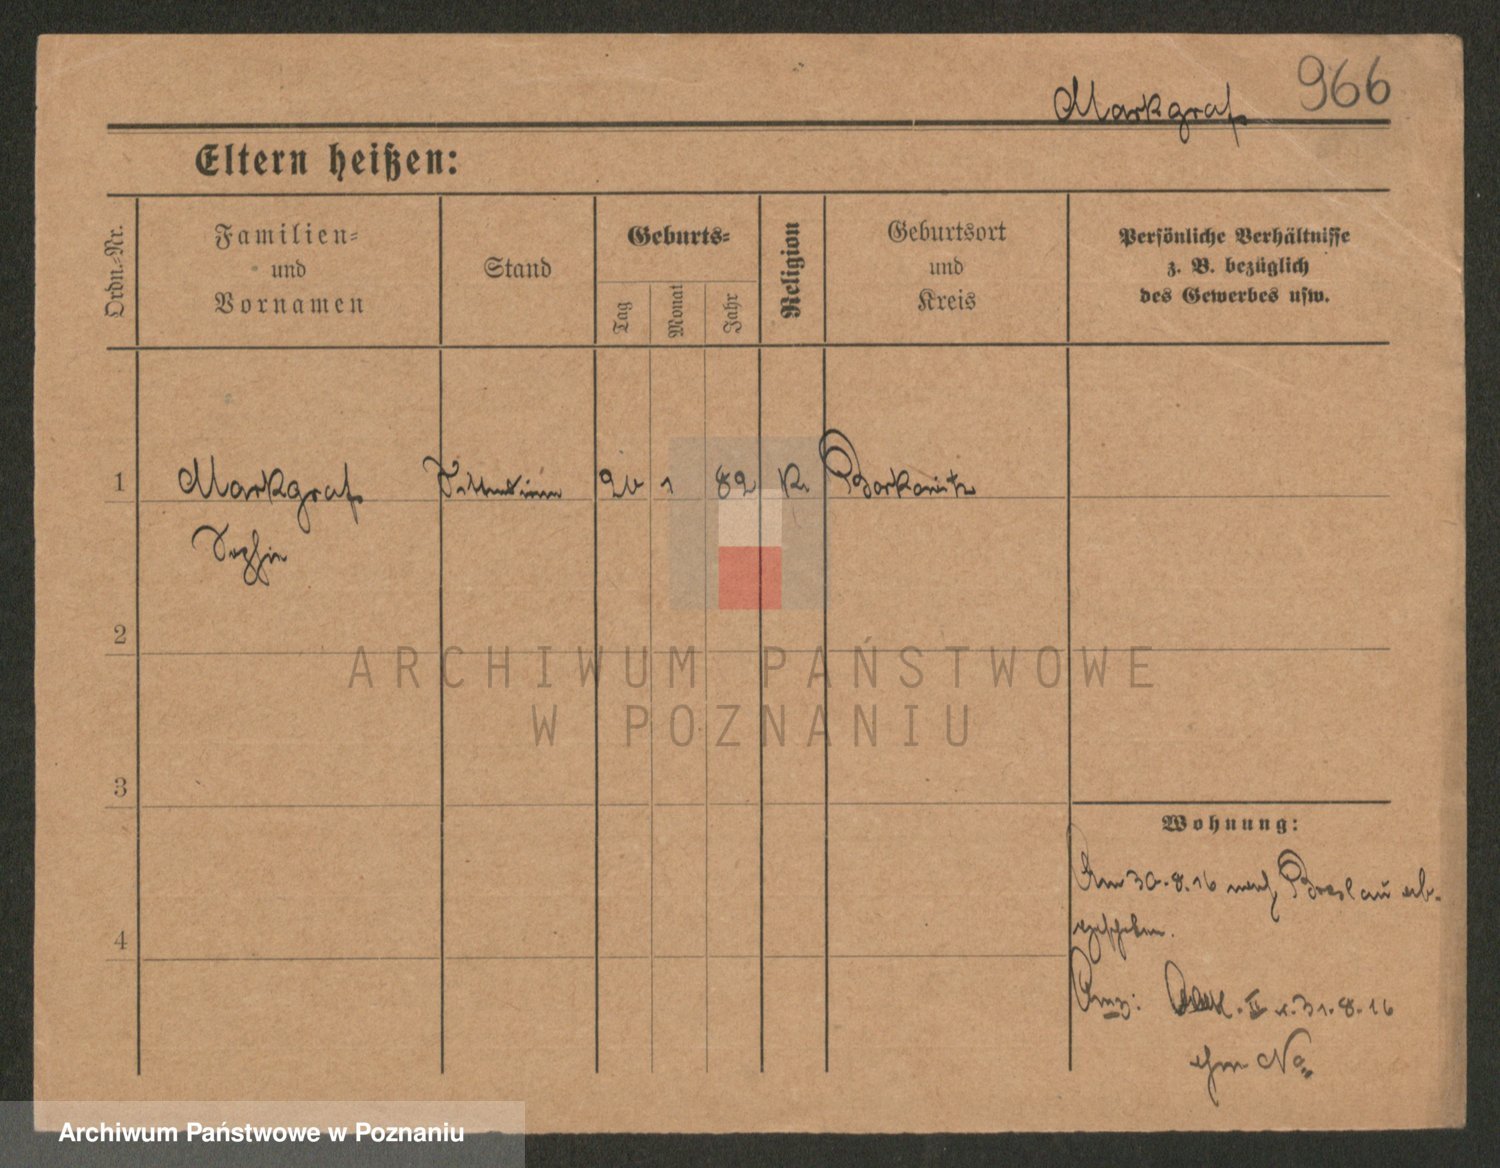 966
Markgraf
Eltern heißen:
Ordn.-Nr.
Familien-
und
Vornamen
Stand
Geburts-
Tag
Monat
Jahr
Religion
Geburtsort
und
Kreis
Persönliche Verhältnisse
z. B. bezüglich
des Gewerbes usw.
1
Markgraf
26 1 82 K. Borkowitz
Sophie
2
ARCHIWUM PAŃSTWOWE
W POZNANIU
3
Wohnung:
Am 30.8.16 nach Breslau ab-
geschoben.
4
Anz: II v. 31.8.16
ohne No
Archiwum Państwowe w Poznaniu